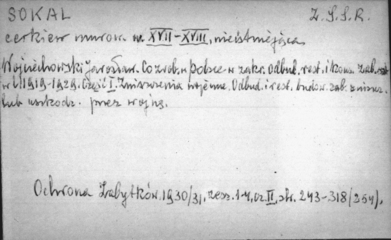 SOKAL Z.S.S.R.
cerkiew murow. w XVII-XVIII, nieistniejąca
Wojciechowski Jarosław. Co zrob. w Polsce w zakr. odbud. rest. i kons. zab.
w l. 1919-1929. Część I. Zniszczenia wojenne. Odbud. i rest. budow. zab. zniszcz.
lub uszkodz. przez wojnę.
Ochrona Zabytków. 1930/31, zesz. 1-4, cz. II, str. 243-318/264/.